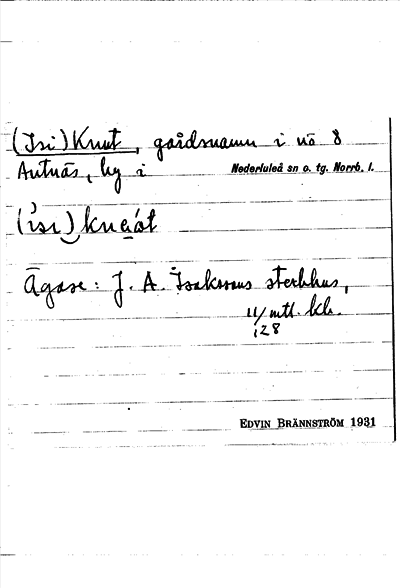 (Isi)Knut, gårdsnamn i nö 8
Antnäs, by i Nederluleå sn o. tg. Norrb. l.
Ägare: J. A. Isakssons sterbhus,
11/ mtl. kr.
128
EDVIN BRÄNNSTRÖM 1931